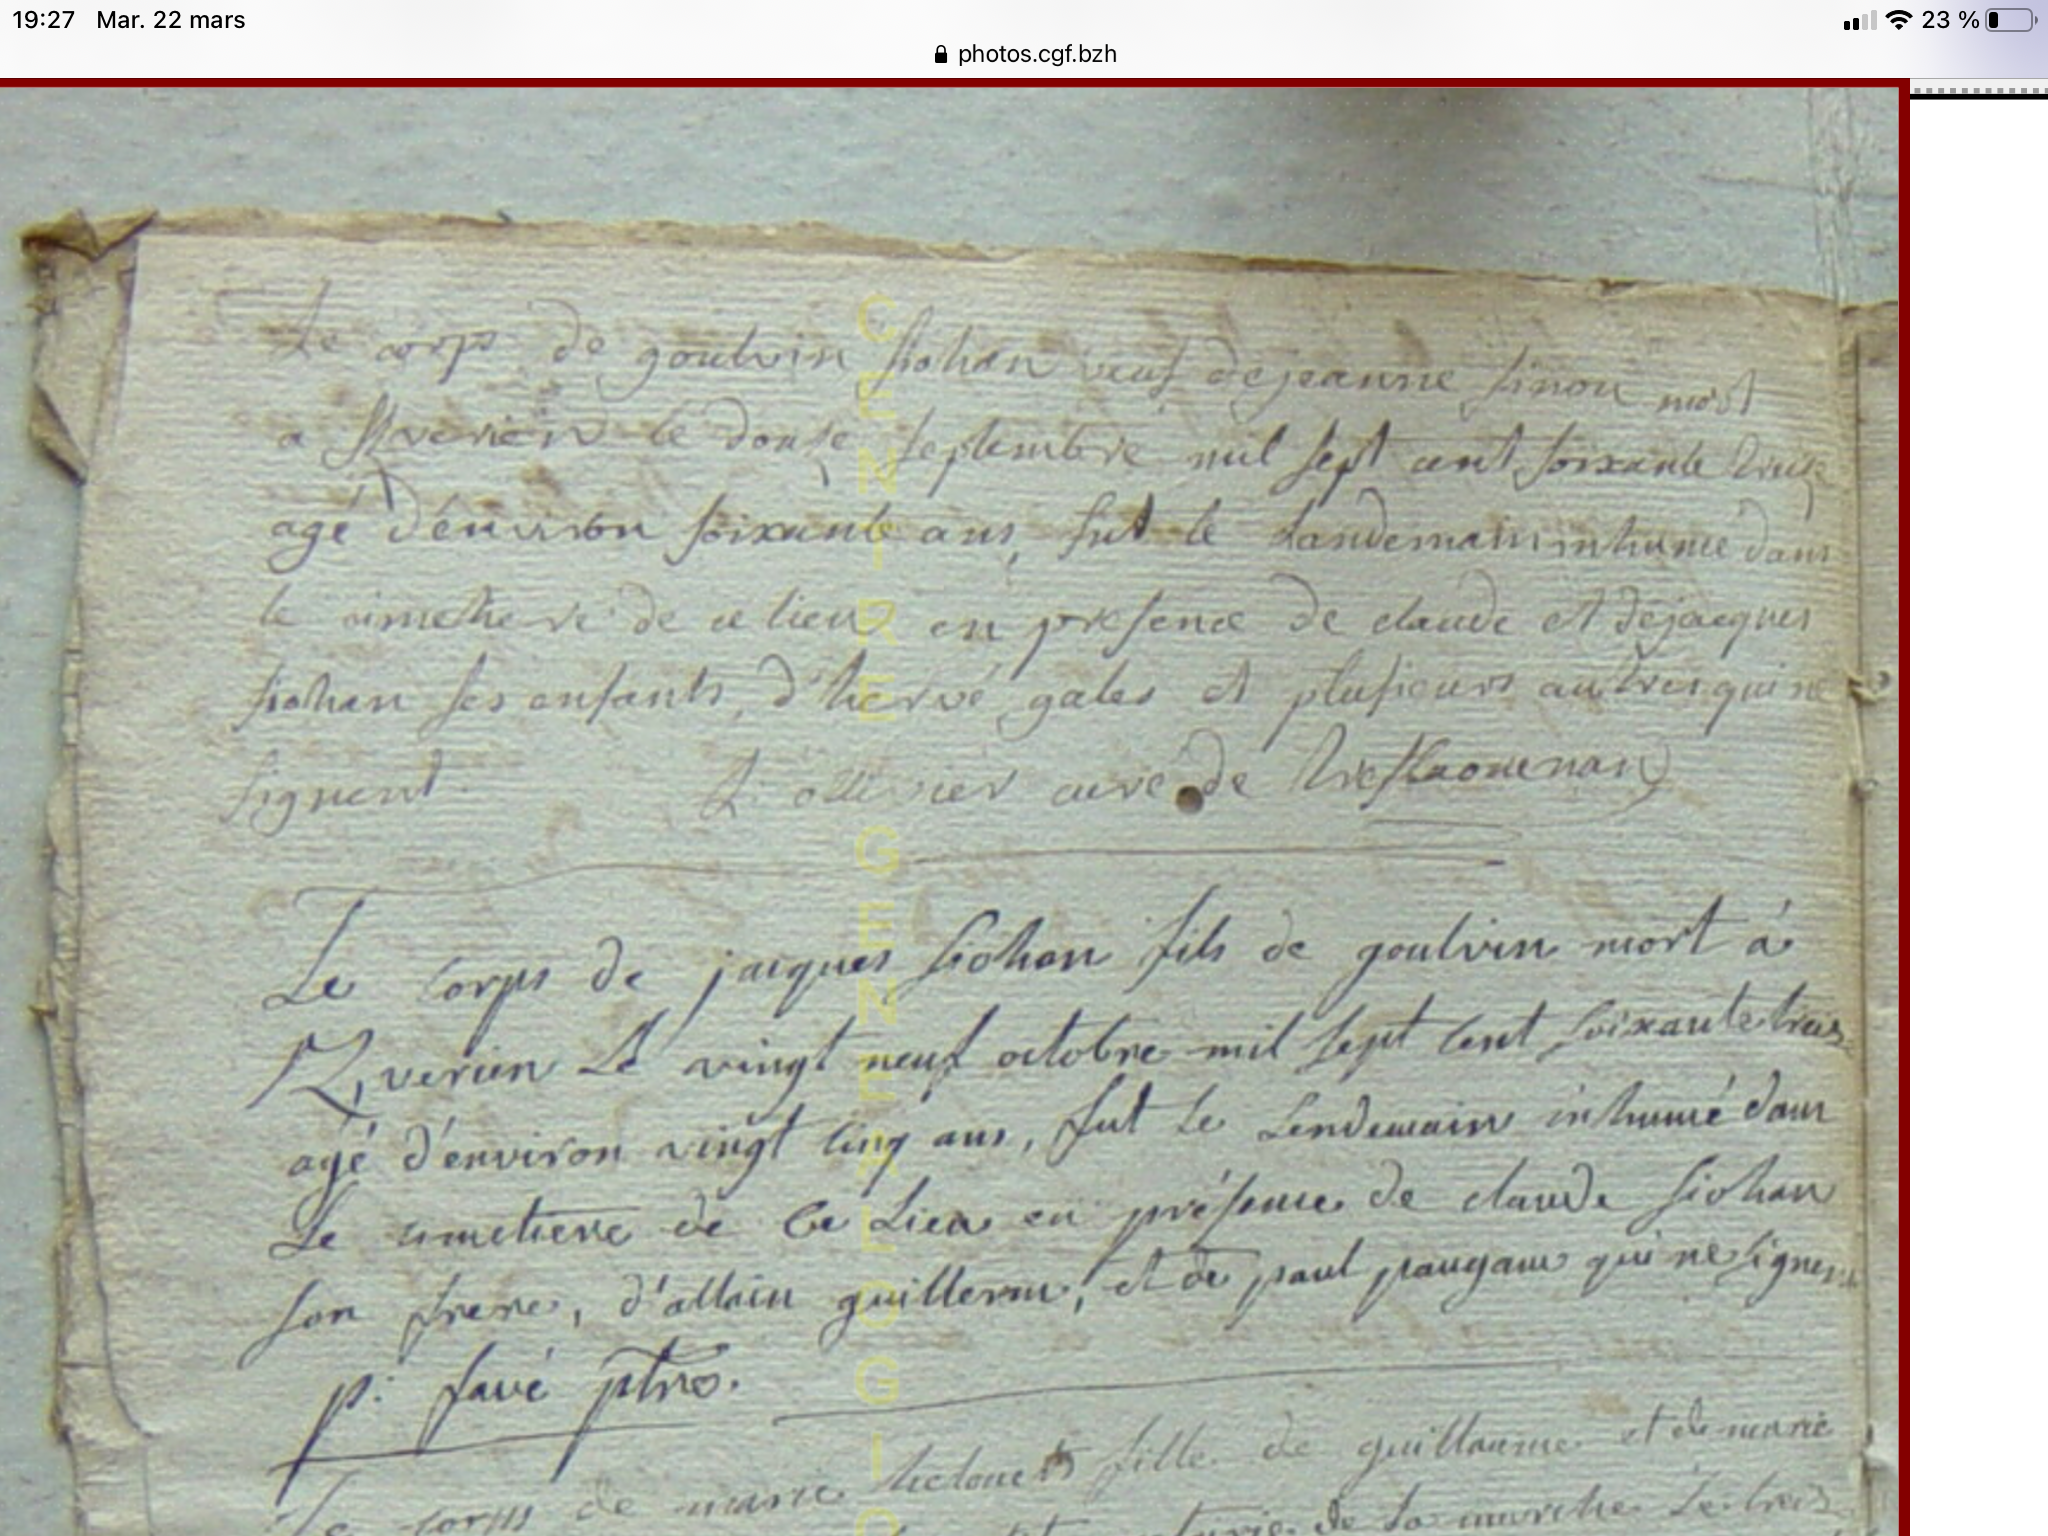 19:27 Mar. 22 mars
23 %
photos.cgf.bzh
Le corps de goulvin siohan veuf de jeanne simon mort
a Kverien le douze septembre mil sept cent soixante treize
agé d'environ soixante ans, fut le Landemain inhumé dans
le cimetiere de ce lieu en presence de claude et de jacques
siohan ses enfants, d'hervé galес et plusieurs autres qui ne
signent. ollivier curé de treflaouenan
Le corps de jacques siohan fils de goulvin mort à
Kverien Le vingt neuf octobre mil sept cent soixante treize
agé d'environ vingt cinq ans, fut Le Lendemain inhumé dans
Le cimetiere de ce Lieu en présence de claude siohan
son frere, d'allain guillerm, et de paul paugam qui ne signent
p: favé ptre.
Le corps de marie fille de guillaume et de marie
de la marche Le trois
CENTRE GENEALOGIQ